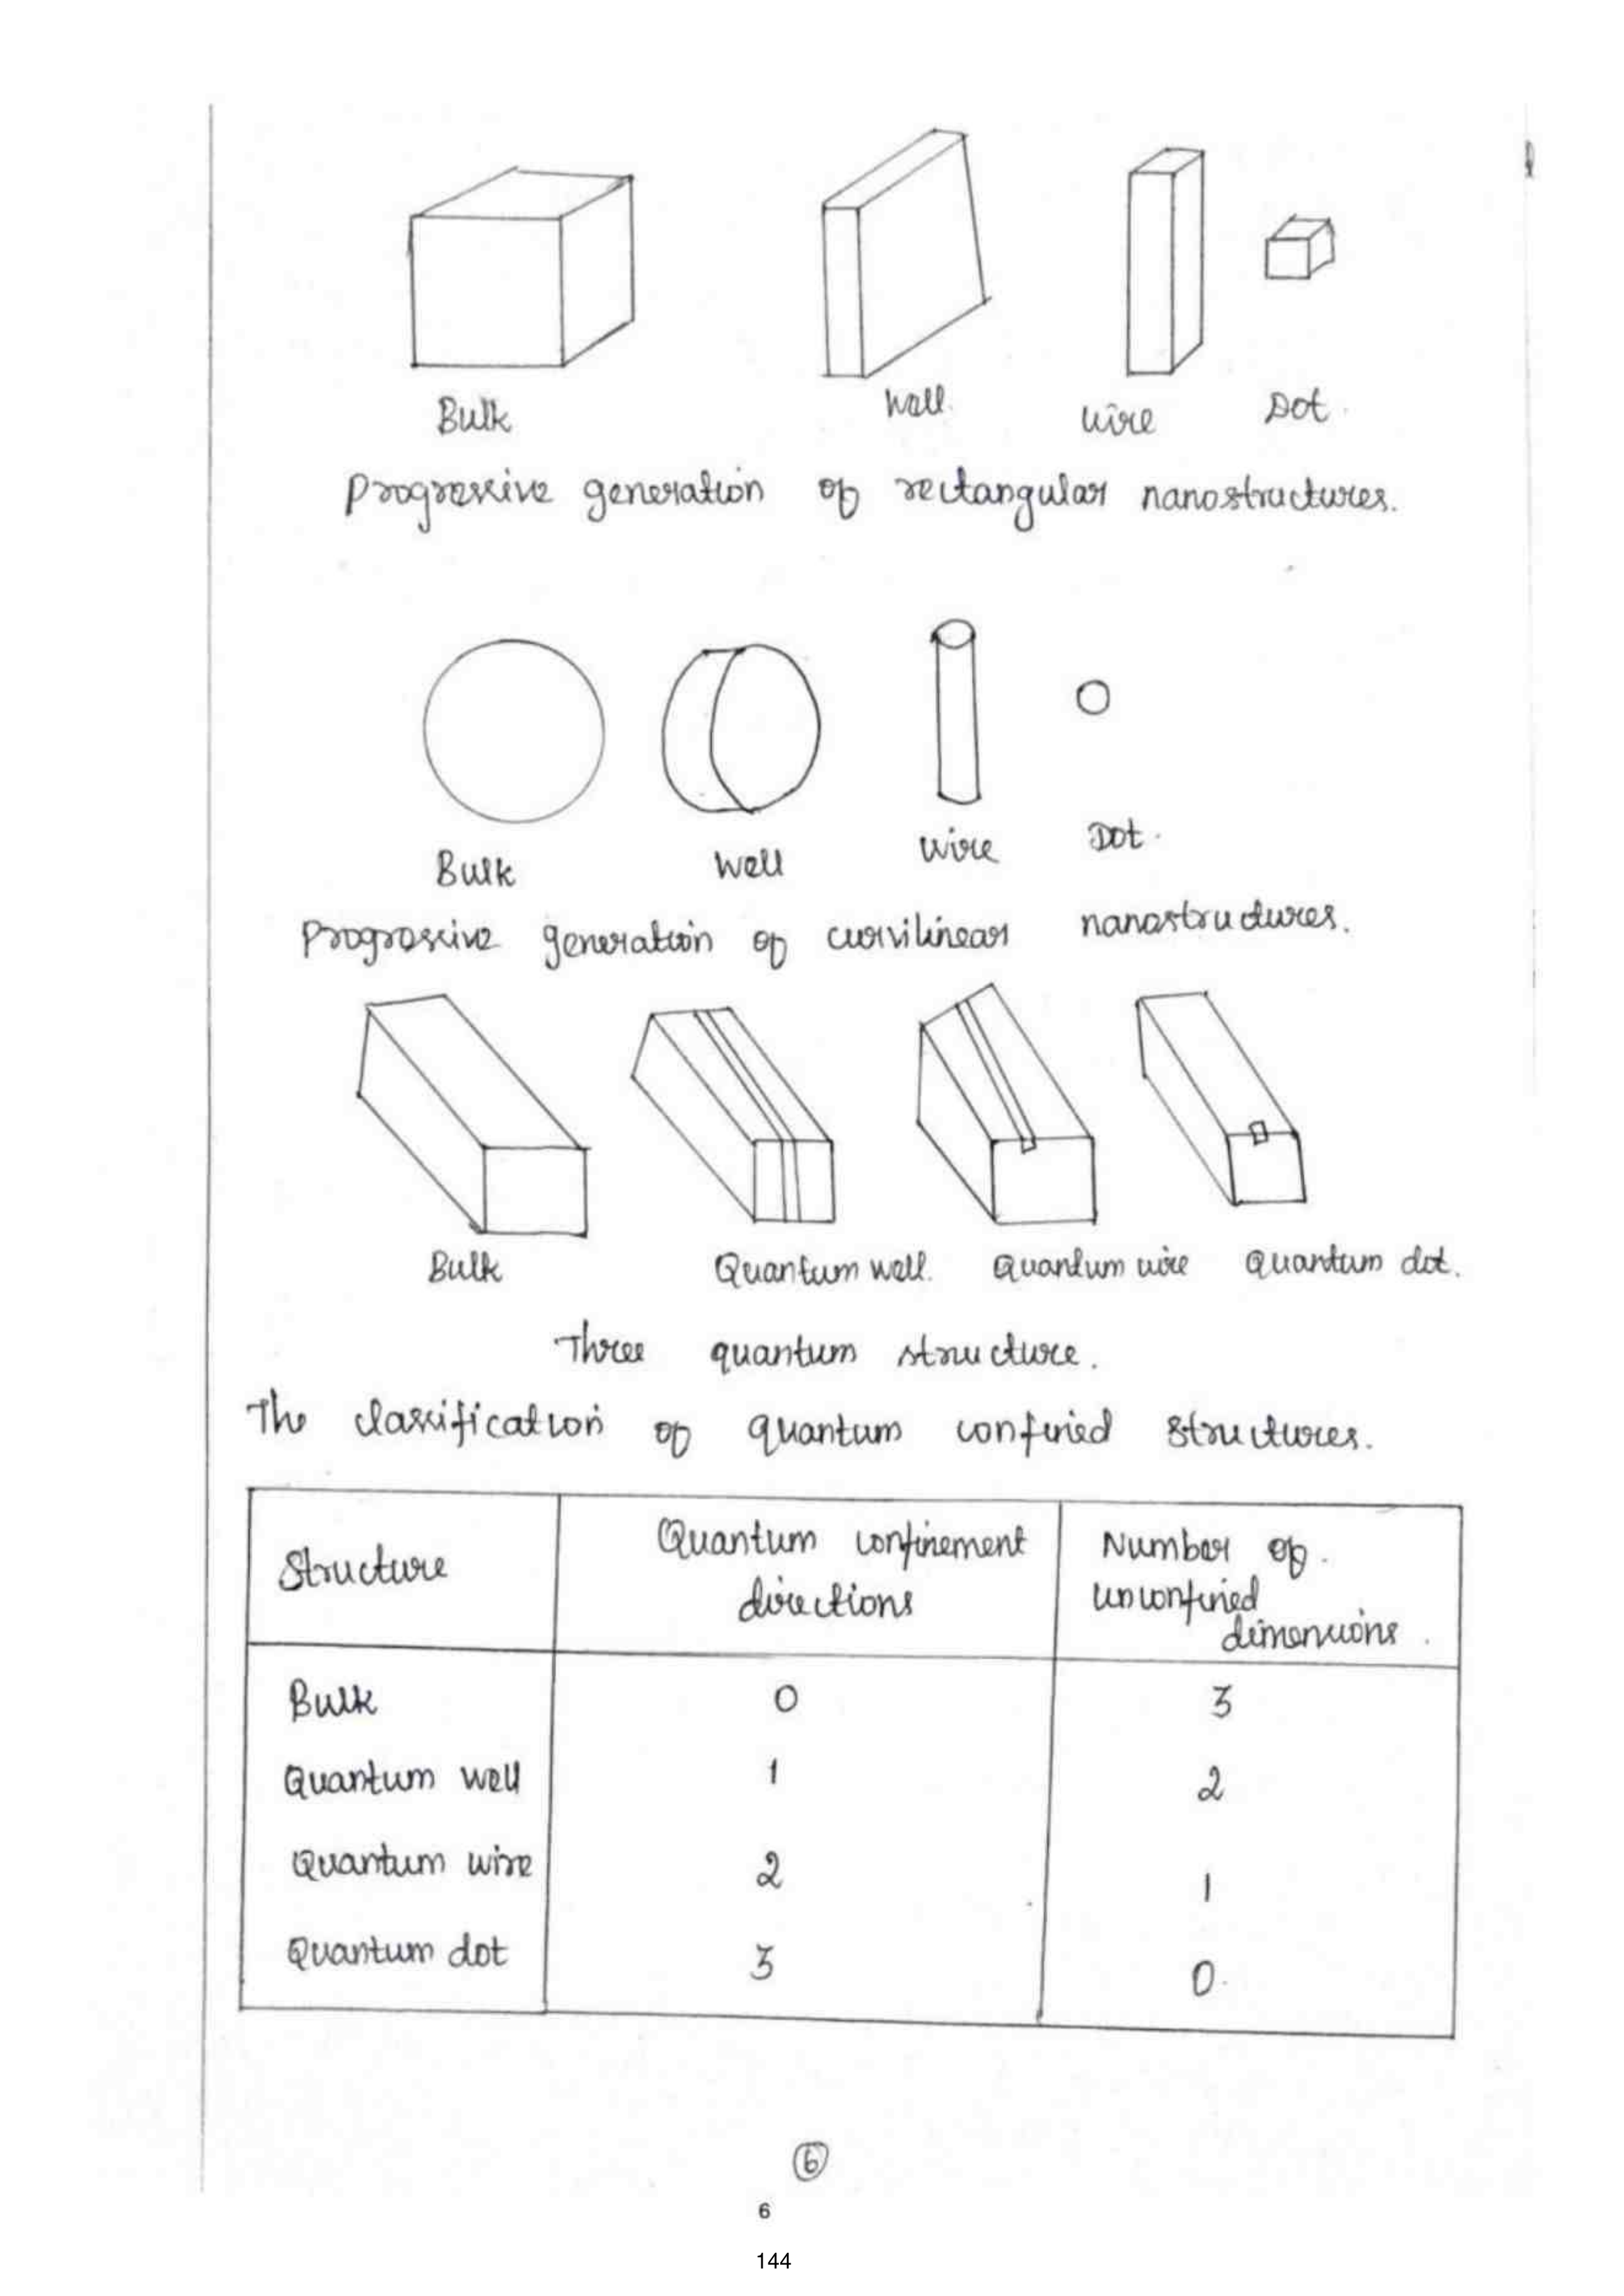 Bulk Well. Wire Dot.
Progressive generation of rectangular nanostructures.
Bulk Well Wire Dot.
Progressive generation of curvilinear nanostructures.
Bulk Quantum well. Quantum wire Quantum dot.
Three quantum structure.
The classification of quantum confined structures.
Structure Quantum confinement directions Number of. unconfined dimensions.
Bulk 0 3
Quantum well 1 2
Quantum wire 2 1
Quantum dot 3 0.
6
6
144